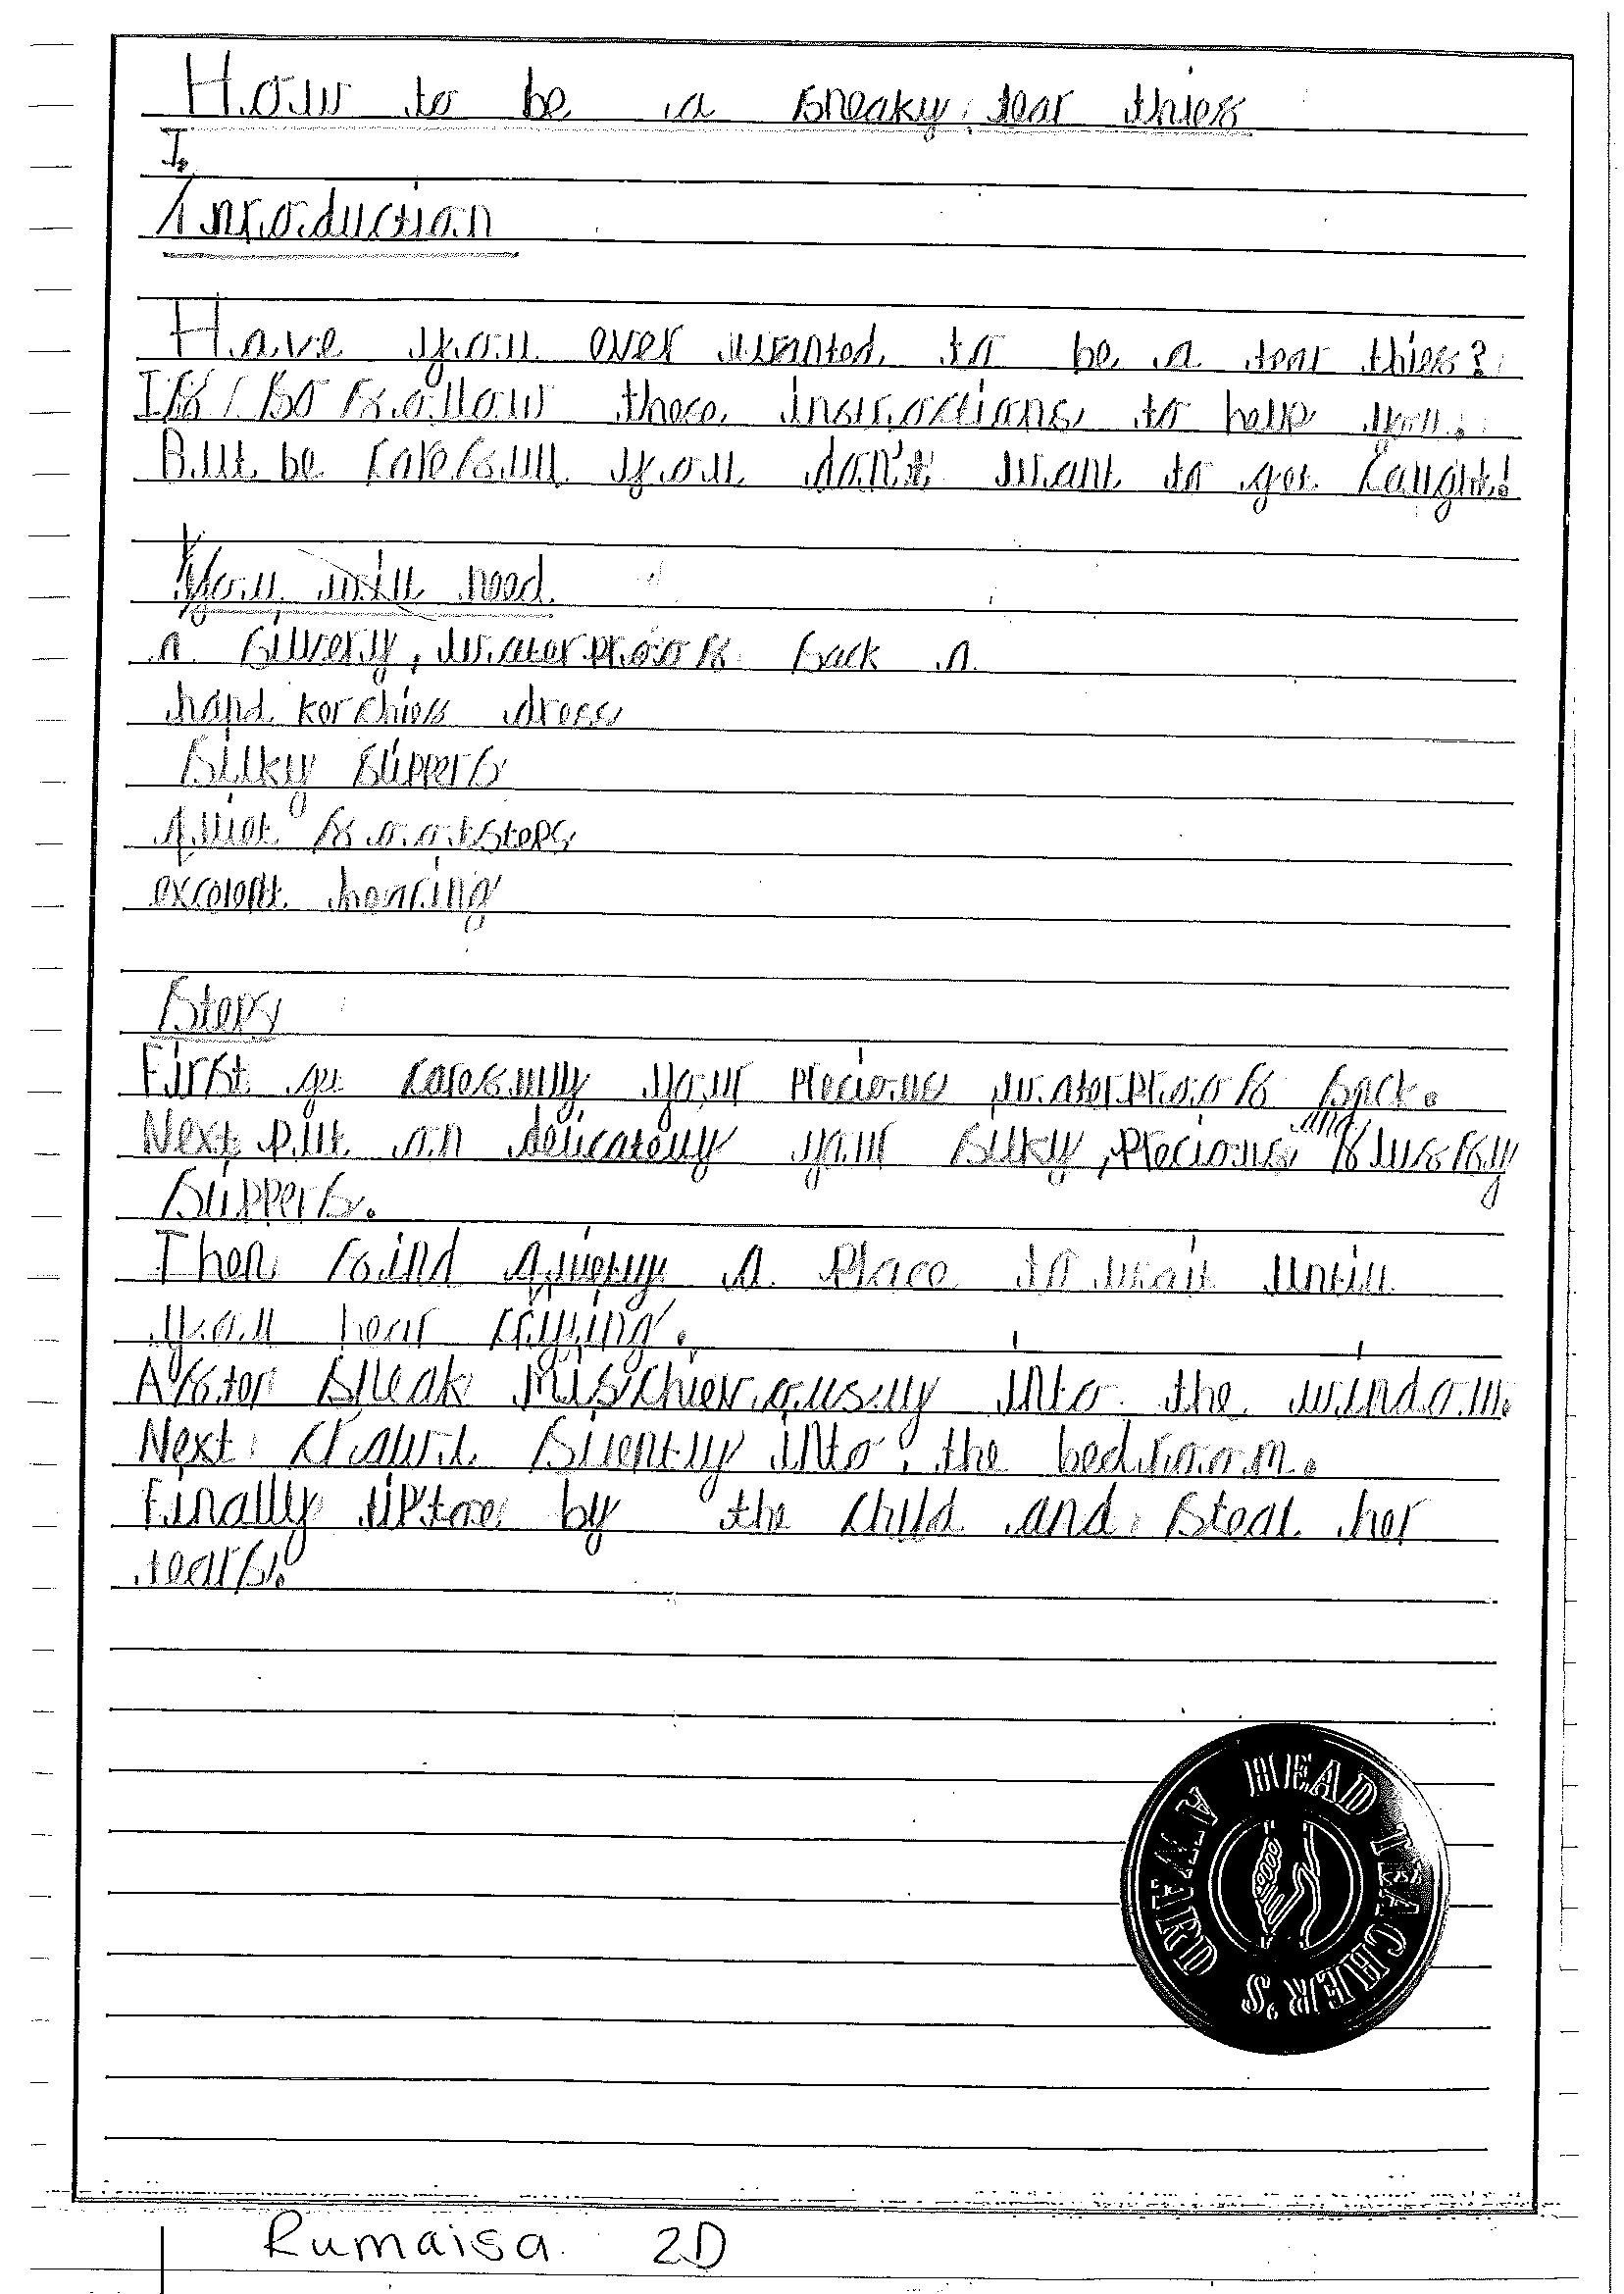 How to be a sneaky tear thief
I
Introduction
Have you ever wanted to be a tear thief?
If so follow these instructions to help you.
But be carefull you don't want to get caught!
You will need
a silvery, waterproof sack a
hand kerchief dress
silky slippers
quiet footsteps
excelent hearing
Steps
First get carefully your precious waterproof sack.
Next put on delicately your silky, precious and fluffy
slippers.
Then find quietly a place to wait untill
you hear crying.
After sneak mischievously into the window.
Next crawl silently into the bedroom.
Finally tiptoe by the child and steal her
tears.
HEAD TEACHER'S AWARD
Rumaisa 2D